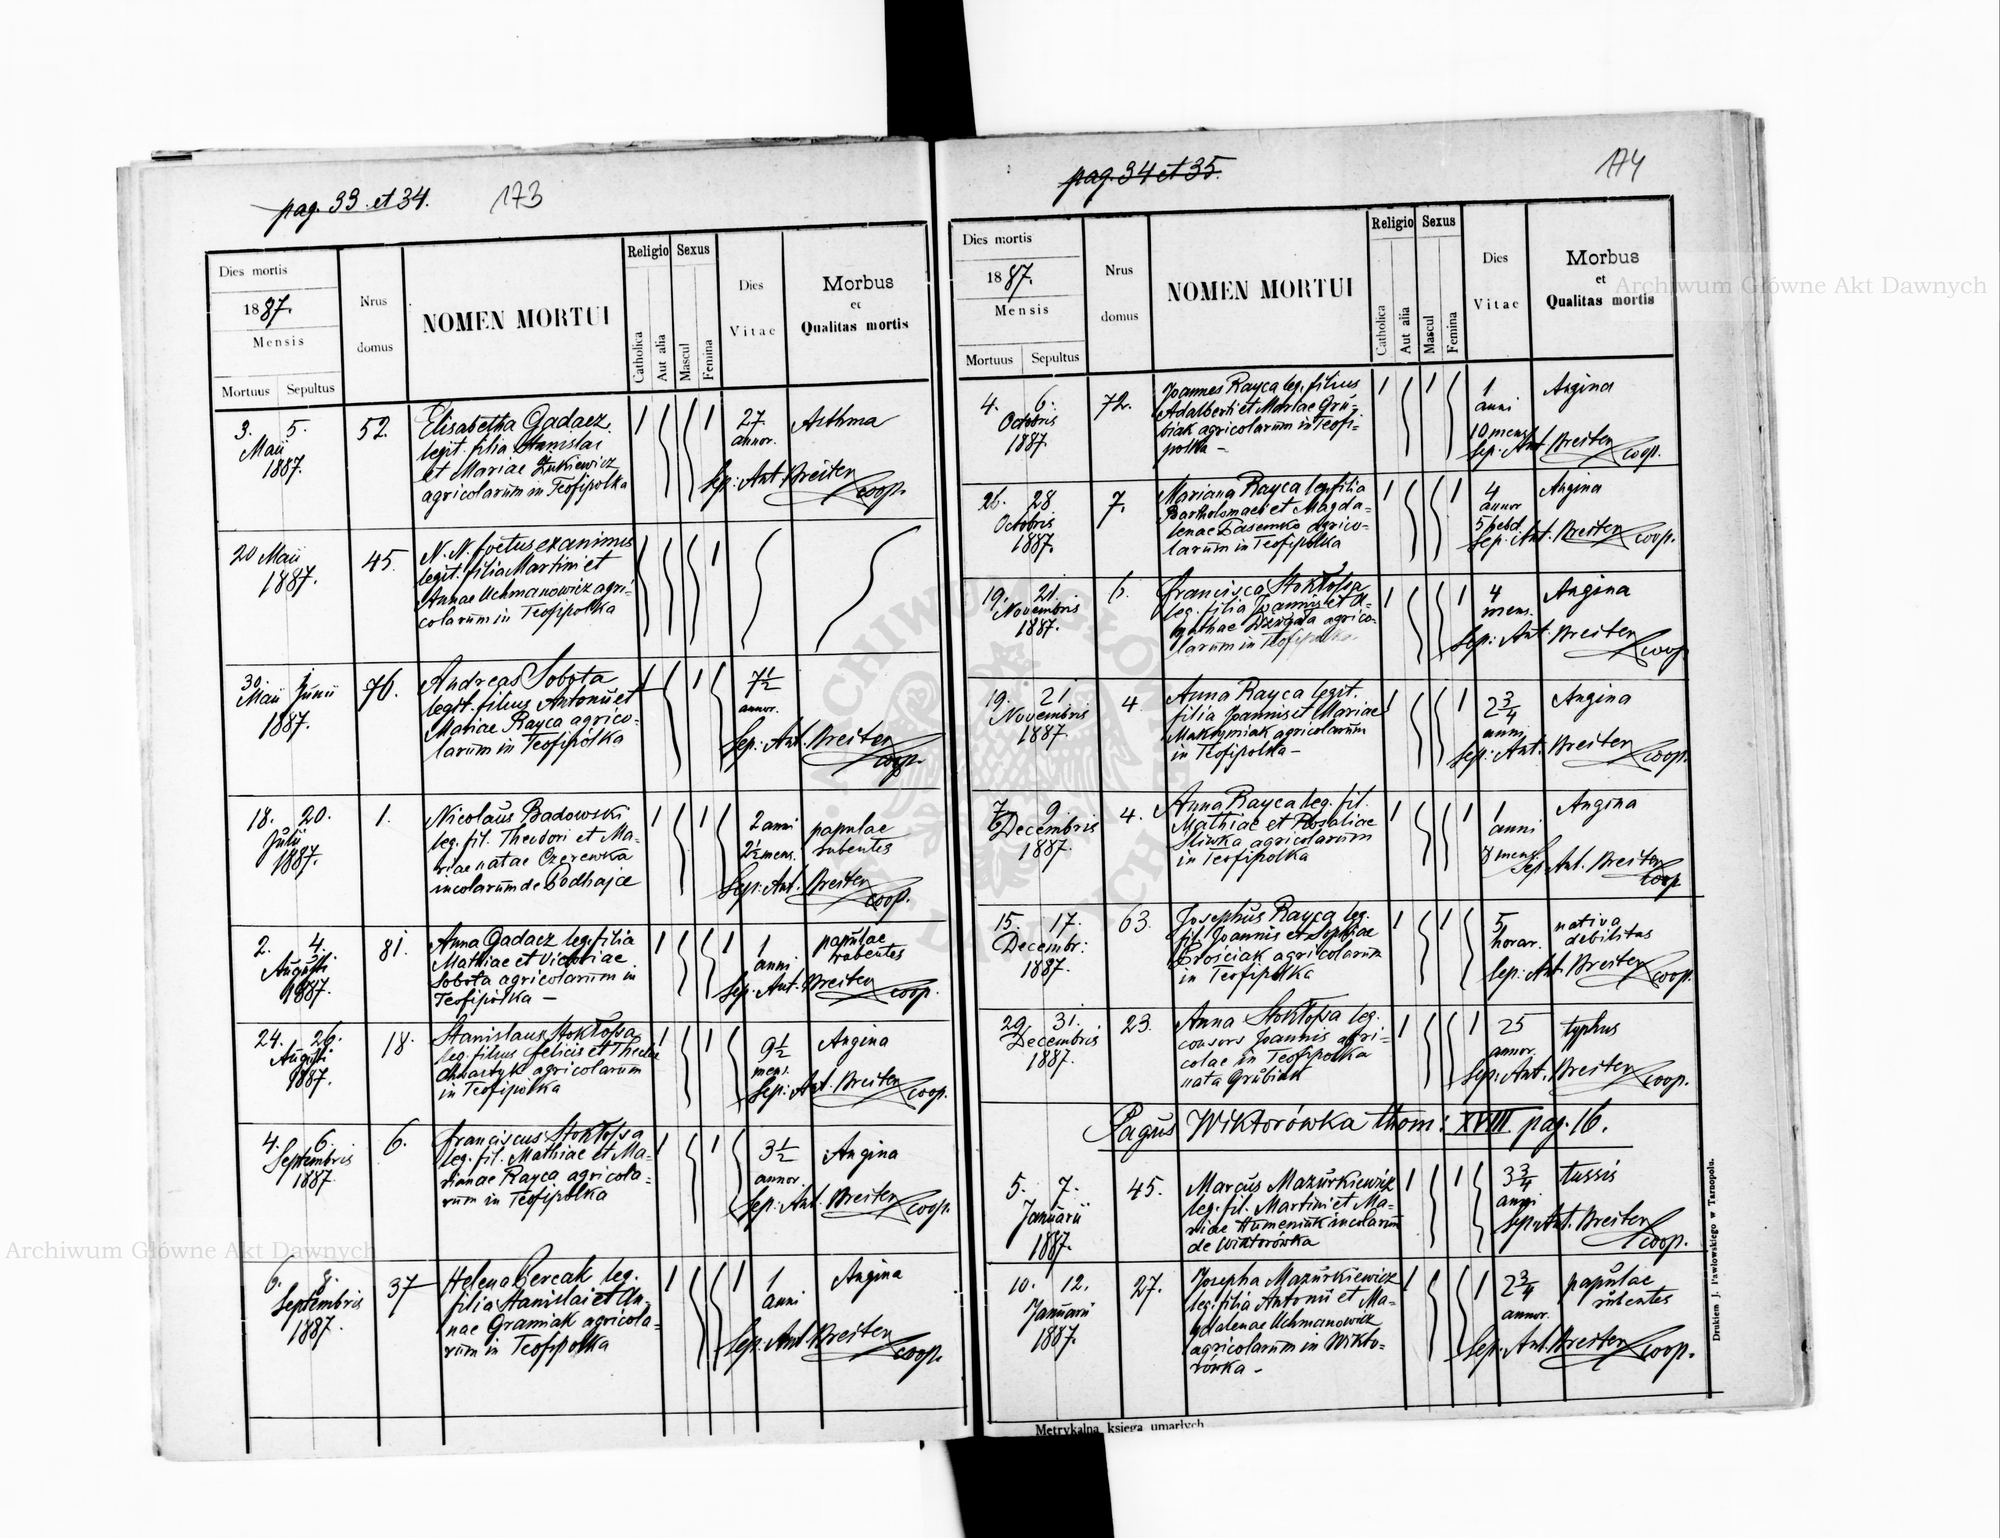 pag. 33 et 34. 173
Dies mortis
1887.
Mensis
Mortuus Sepultus
Nrus
domus
NOMEN MORTUI
Religio
Catholica
Aut alia
Sexus
Mascul
Femina
Dies
Vitae
Morbus
et
Qualitas mortis
3. 5.
Maii
1887.
52.
Elisabetha Gadacz
legit. filia Stanislai
et Mariae Żukiewicz
agricolarum in Teofipolka
27.
annor.
Asthma
Sep: Ant. Breiter
coop.
20 Maii
1887.
45.
N. N. foetus exanimis
legit. filia Martini et
Annae Uchmanowicz agri-
colarum in Teofipolka
30.
Maii Junii
1887.
76.
Andreas Sobota
legit. filius Antonii et
Mariae Rayca agrico-
larum in Teofipolka
7 1/2
annor.
Sep: Ant. Breiter
coop.
18. 20.
Julii
1887.
1.
Nicolaus Badowski
leg. fil. Theodori et Ma-
riae natae Czerewka
incolarum de Podhajce
2 anni
2 1/2 mens.
papulae
rubentes
Sep: Ant. Breiter
coop.
2. 4.
Augusti
1887.
81.
Anna Gadacz leg. filia
Mathiae et Victoriae
Sobota agricolarum in
Teofipolka —
1
anni
papulae
rubentes
Sep: Ant. Breiter
coop.
24. 26.
Augusti
1887.
18.
Stanislaus Stokłossa
leg. filius Felicis et Theclae
Chwastyk agricolarum
in Teofipolka
9 1/2
mens.
Angina
Sep: Ant. Breiter
coop.
4. 6.
Septembris
1887.
6.
Franciscus Stokłossa
leg. fil. Mathiae et Ma-
rianae Rayca agricola-
rum in Teofipolka
3 1/2
annor.
Angina
Sep: Ant. Breiter
coop.
6. 8.
Septembris
1887.
37
Helena Bercak leg.
filia Stanislai et An-
nae Gramiak agricola-
rum in Teofipolka
1
anni
Angina
Sep: Ant. Breiter
coop.
pag. 34 et 35. 174
Dies mortis
1887.
Mensis
Mortuus Sepultus
Nrus
domus
NOMEN MORTUI
Religio
Catholica
Aut alia
Sexus
Mascul
Femina
Dies
Vitae
Morbus
et
Qualitas mortis
4. 6.
Octobris
1887.
72.
Joannes Rayca leg. filius
Adalberti et Mariae Gru-
biak agricolarum in Teofi-
polka —
1
anni
10 mens
Angina
Sep: Ant Breiter
coop.
26. 28
Octobris
1887.
7.
Mariana Rayca leg. filia
Bartholomaei et Magda-
lenae agrico-
larum in Teofipolka
4
annor
5 hebd.
Angina
Sep: Ant. Breiter
coop.
19. 21.
Novembris
1887.
6.
Francisca Stokłossa
leg. filia Joannis et A-
gathae agrico-
larum in Teofipolka
4
mens.
Angina
Sep: Ant Breiter
coop
19. 21
Novembris
1887.
4.
Anna Rayca legit.
filia Joannis et Mariae
Maksymiak agricolarum
in Teofipolka —
2 3/4
anni
Angina
Sep: Ant. Breiter
coop.
7. 9.
Decembris
1887.
4.
Anna Rayca leg. fil.
Mathiae et Rosaliae
Śliwka agricolarum
in Teofipolka
1
anni
8 mens
Angina
Sep: Ant. Breiter
coop
15. 17.
Decembr:
1887.
63.
Josephus Rayca leg.
fil. Joannis et Sophiae
agricolarum
in Teofipolka
5
horar.
nativa
debilitas
Sep: Ant. Breiter
coop.
29. 31.
Decembris
1887.
23.
Anna Stokłossa leg.
consors Joannis agri-
colae in Teofipolka
nata Grubiak
25
annor.
typhus
Sep: Ant. Breiter
coop.
Pagus Wiktorówka thom: XVIII pag. 16.
5. 7.
Januarii
1887.
45.
Marcus Mazurkiewicz
leg. fil. Martini et Ma-
riae Humeniuk incolarum
de Wiktorówka
3 3/4
anni
tussis
Sep: Ant. Breiter
coop.
10. 12.
Januarii
1887.
27.
Josepha Mazurkiewicz
leg. filia Antonii et Ma-
gdalenae Uchmanowicz
agricolarum in Wikto-
rówka —
2 3/4
annor.
papulae
rubentes
Sep: Ant. Breiter
coop.
Metrykalna księga umarłych
Drukiem J. Pawłowskiego w Tarnopolu.
Archiwum Główne Akt Dawnych
Archiwum Główne Akt Dawnych